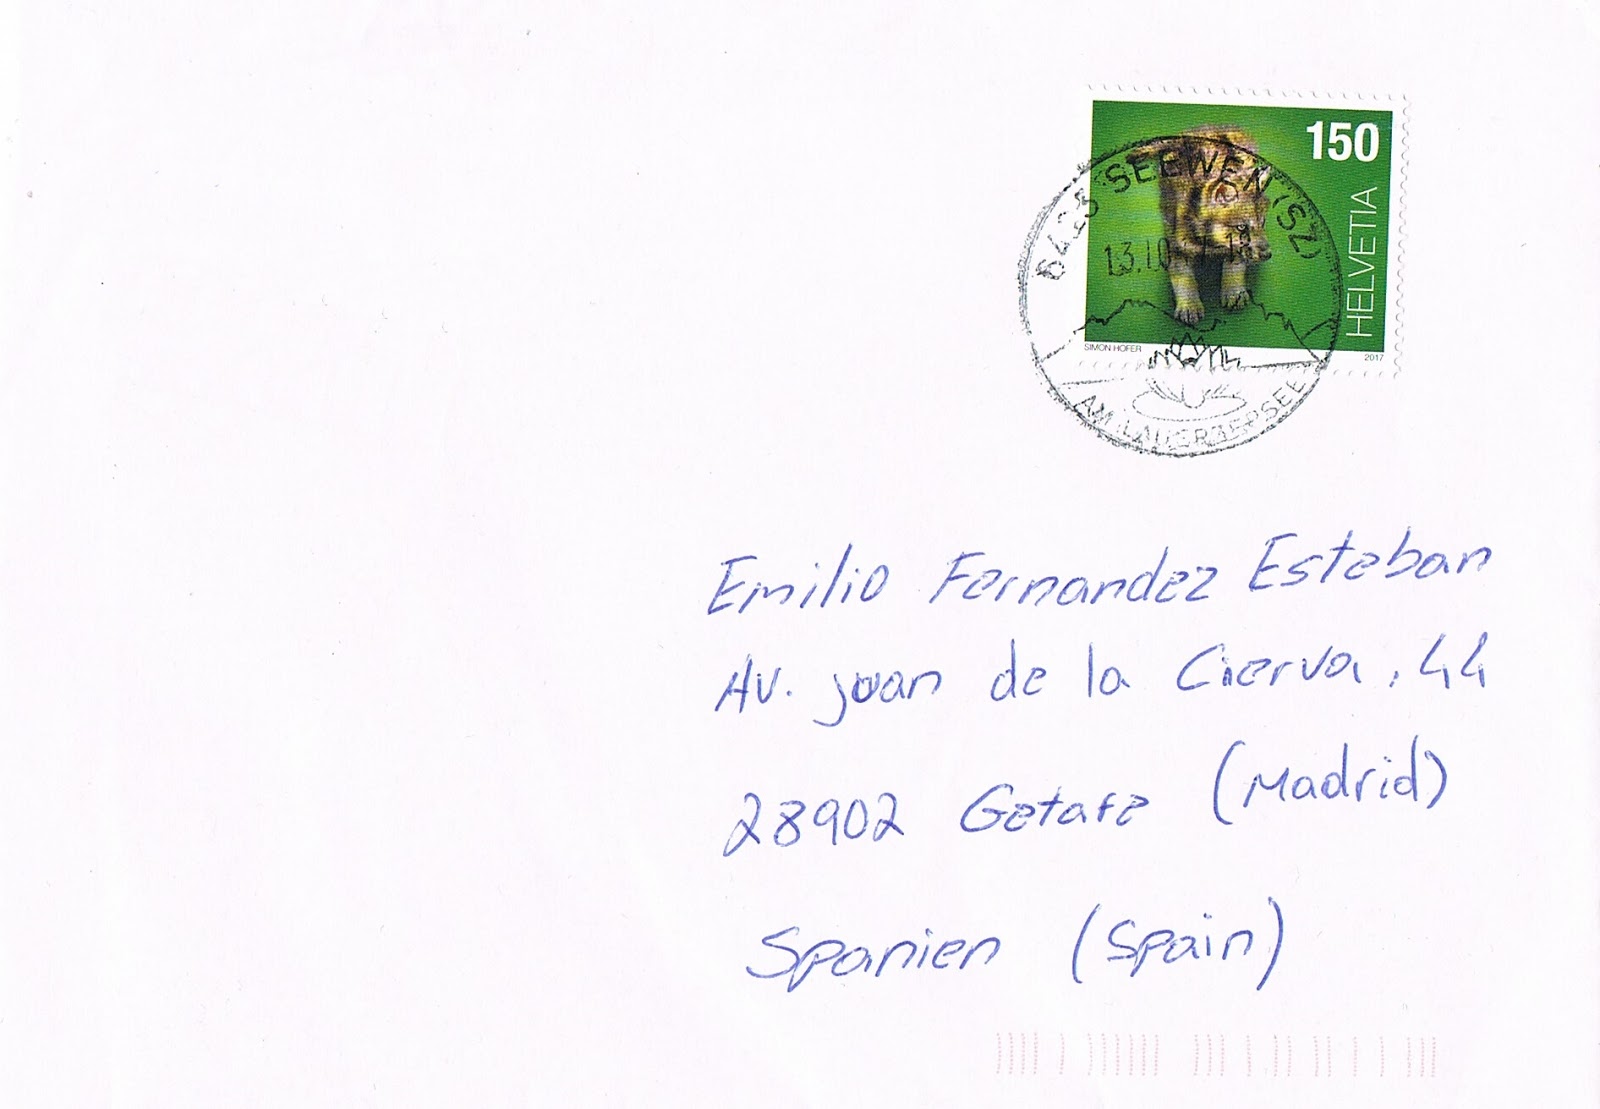 150
HELVETIA
SIMON HOFER
2017
6423 SEEWEN (SZ)
AM LAUERZERSEE
Emilio Fernandez Esteban
Av. juan de la Cierva, 44
28902 Getafe (Madrid)
Spanien (Spain)